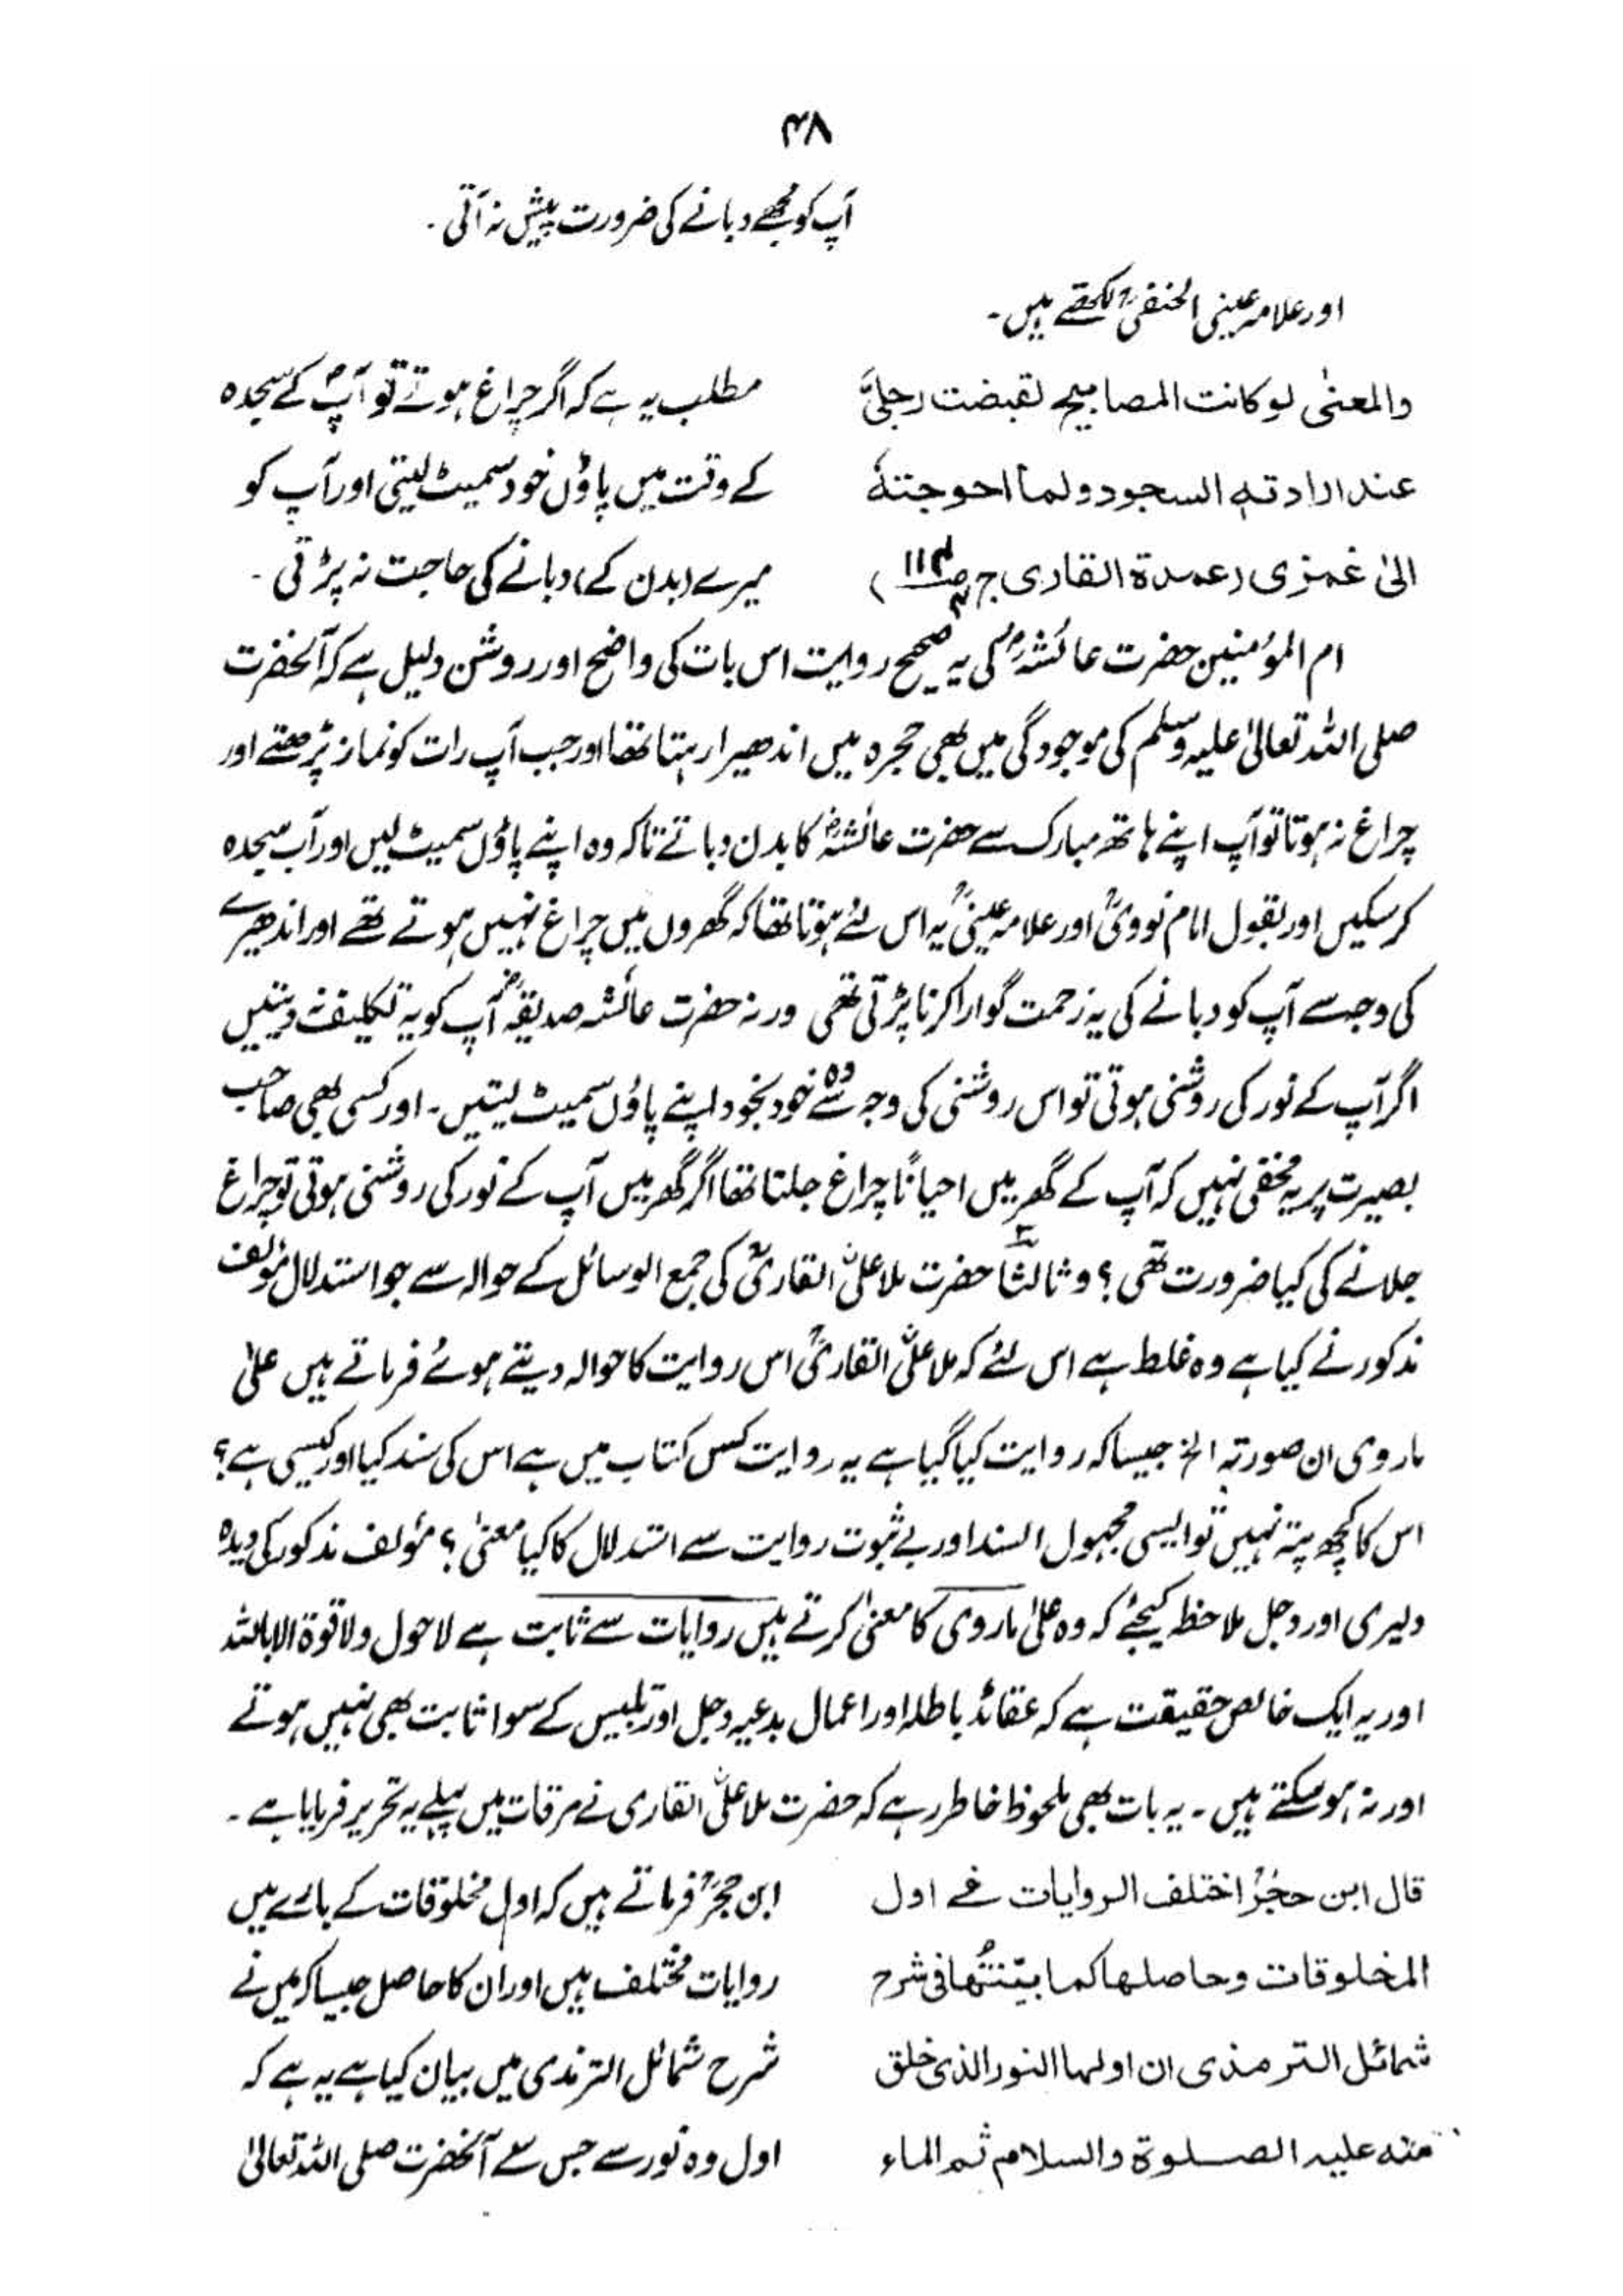 ۴۸
آپ کو مجھے دبانے کی ضرورت پیش نہ آتی ۔
اور علامہ عینی الحنفیؒ لکھتے ہیں ۔
والمعنیٰ لو کانت المصابیح لقبضت رجلیَّ
عند ارادتہ السجود ولما احوجتہٗ
الیٰ غمزی (عمدۃ القاری ج۴ ص۱۱۴)
مطلب یہ ہے کہ اگر چراغ ہوتے تو آپؐ کے سجدہ
کے وقت میں پاؤں خود سمیٹ لیتی اور آپ کو
میرے (بدن کے) دبانے کی حاجت نہ پڑتی ۔
ام المؤمنین حضرت عائشہؓ کی یہ صحیح روایت اس بات کی واضح اور روشن دلیل ہے کہ آنحضرت
صلی اللہ تعالیٰ علیہ وسلم کی موجودگی میں بھی حجرہ میں اندھیرا رہتا تھا اور جب آپ رات کو نماز پڑھتے اور
چراغ نہ ہوتا تو آپ اپنے ہاتھ مبارک سے حضرت عائشہؓ کا بدن دباتے تاکہ وہ اپنے پاؤں سمیٹ لیں اور آپ سجدہ
کر سکیں اور بقول امام نوویؒ اور علامہ عینیؒ یہ اس لئے ہوتا تھا کہ گھروں میں چراغ نہیں ہوتے تھے اور اندھیرے
کی وجہ سے آپ کو دبانے کی یہ زحمت گوارا کرنا پڑتی تھی ورنہ حضرت عائشہ صدیقہؓ آپ کو یہ تکلیف نہ دیتیں
اگر آپ کے نور کی روشنی ہوتی تو اس روشنی کی وجہ سے وہ خود بخود اپنے پاؤں سمیٹ لیتیں ۔ اور کسی بھی صاحب
بصیرت پر یہ مخفی نہیں کہ آپ کے گھر میں احیاناً چراغ جلتا تھا اگر گھر میں آپ کے نور کی روشنی ہوتی تو چراغ
جلانے کی کیا ضرورت تھی ؟ وثالثاً حضرت ملا علیؒ القاریؒ کی جمع الوسائل کے حوالہ سے جو استدلال مؤلف
مذکور نے کیا ہے وہ غلط ہے اس لئے کہ ملا علیؒ القاریؒ اس روایت کا حوالہ دیتے ہوئے فرماتے ہیں علیٰ
ما روی ان صورتہ الخ جیسا کہ روایت کیا گیا ہے یہ روایت کس کتاب میں ہے اس کی سند کیا اور کیسی ہے ؟
اس کا کچھ پتہ نہیں تو ایسی مجہول السند اور بے ثبوت روایت سے استدلال کا کیا معنیٰ ؟ مؤلف مذکور کی دیدہ
دلیری اور دجل ملاحظہ کیجئے کہ وہ علیٰ ما روی کا معنیٰ کرتے ہیں روایات سے ثابت ہے لا حول ولا قوۃ الا باللہ
اور یہ ایک خالص حقیقت ہے کہ عقائد باطلہ اور اعمال بدعیہ دجل اور تلبیس کے سوا ثابت بھی نہیں ہوتے
اور نہ ہو سکتے ہیں ۔ یہ بات بھی ملحوظ خاطر رہے کہ حضرت ملا علیؒ القاری نے مرقات میں پہلے یہ تحریر فرمایا ہے ۔
قال ابن حجرؒ اختلف الروایات فی اول
المخلوقات وحاصلھا کما بیّنتُھا فی شرح
شمائل الترمذی ان اولھا النور الذی خلق
منہ علیہ الصلوۃ والسلام ثم الماء
ابن حجرؒ فرماتے ہیں کہ اول مخلوقات کے بارے میں
روایات مختلف ہیں اور ان کا حاصل جیسا کہ میں نے
شرح شمائل الترمذی میں بیان کیا ہے یہ ہے کہ
اول وہ نور ہے جس سے آنحضرت صلی اللہ تعالیٰ